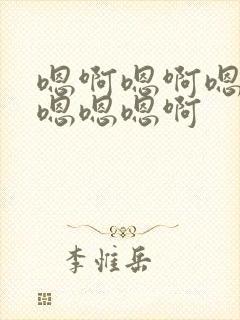 嗯啊嗯啊嗯
嗯嗯嗯啊
李惟岳